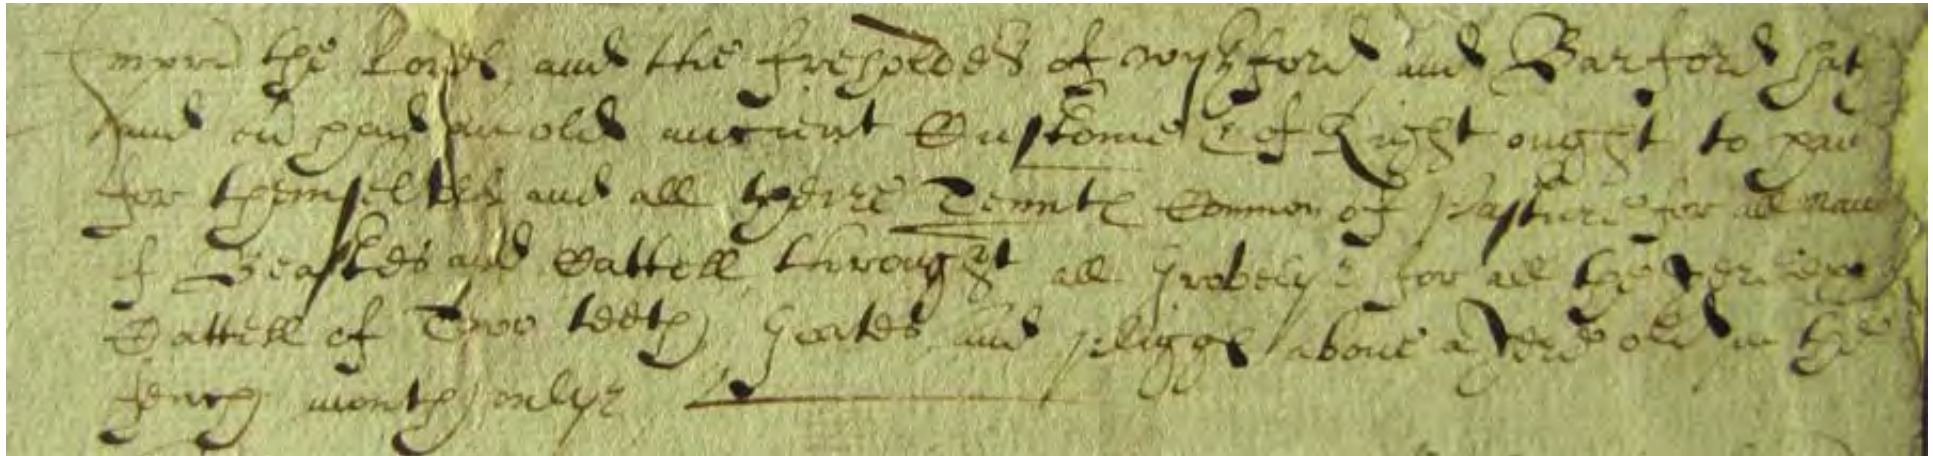 Inpri the Lords and the freholdes of wyshford and Barford hat
and on pauld an old auncient Custome & of Right ought to
for themselves and all theire Tennts Common of Pasture for all
of Beastes and Cattell throught all Grovelye for all the yere
Cattell of Two teeth Goates and Pigges above a yere old in the
fence month onlye